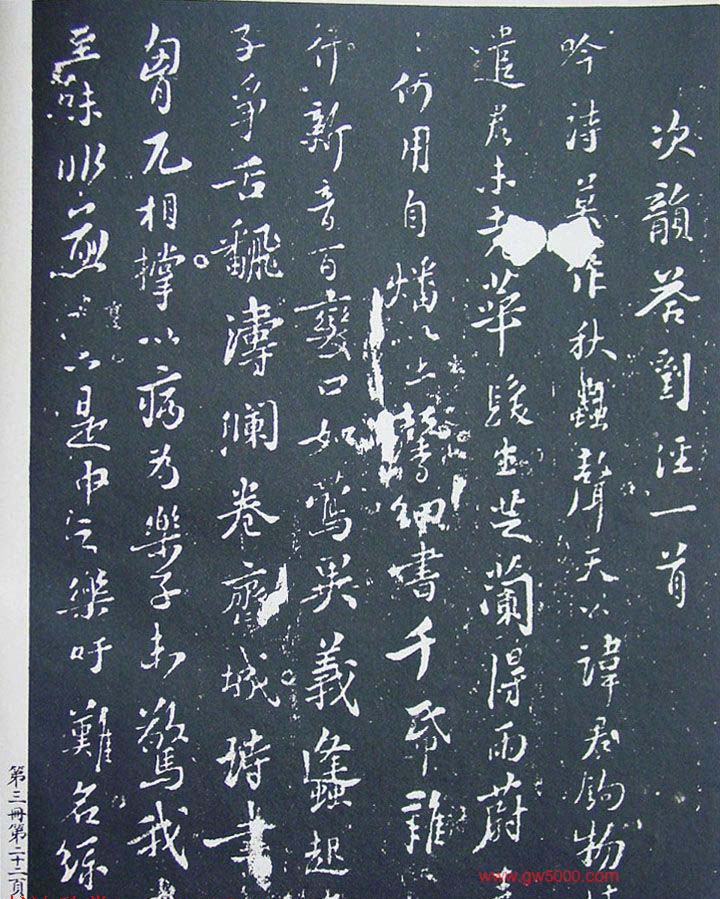 次韻荅劉涇一首
吟詩莫作秋蟲聲天公諱君鉤物情
遣君未老華髮生芝蘭得雨蔚
〻何用自燔以出馨細書千帋雜
行新音百變口如鶯異義蜂起
子爭舌翻濤瀾卷齊城詩書
胷兀相撐以病為樂子未驚我
至味非煎是中之樂吁難名綠
第三冊第二十二頁
www.gw5000.com